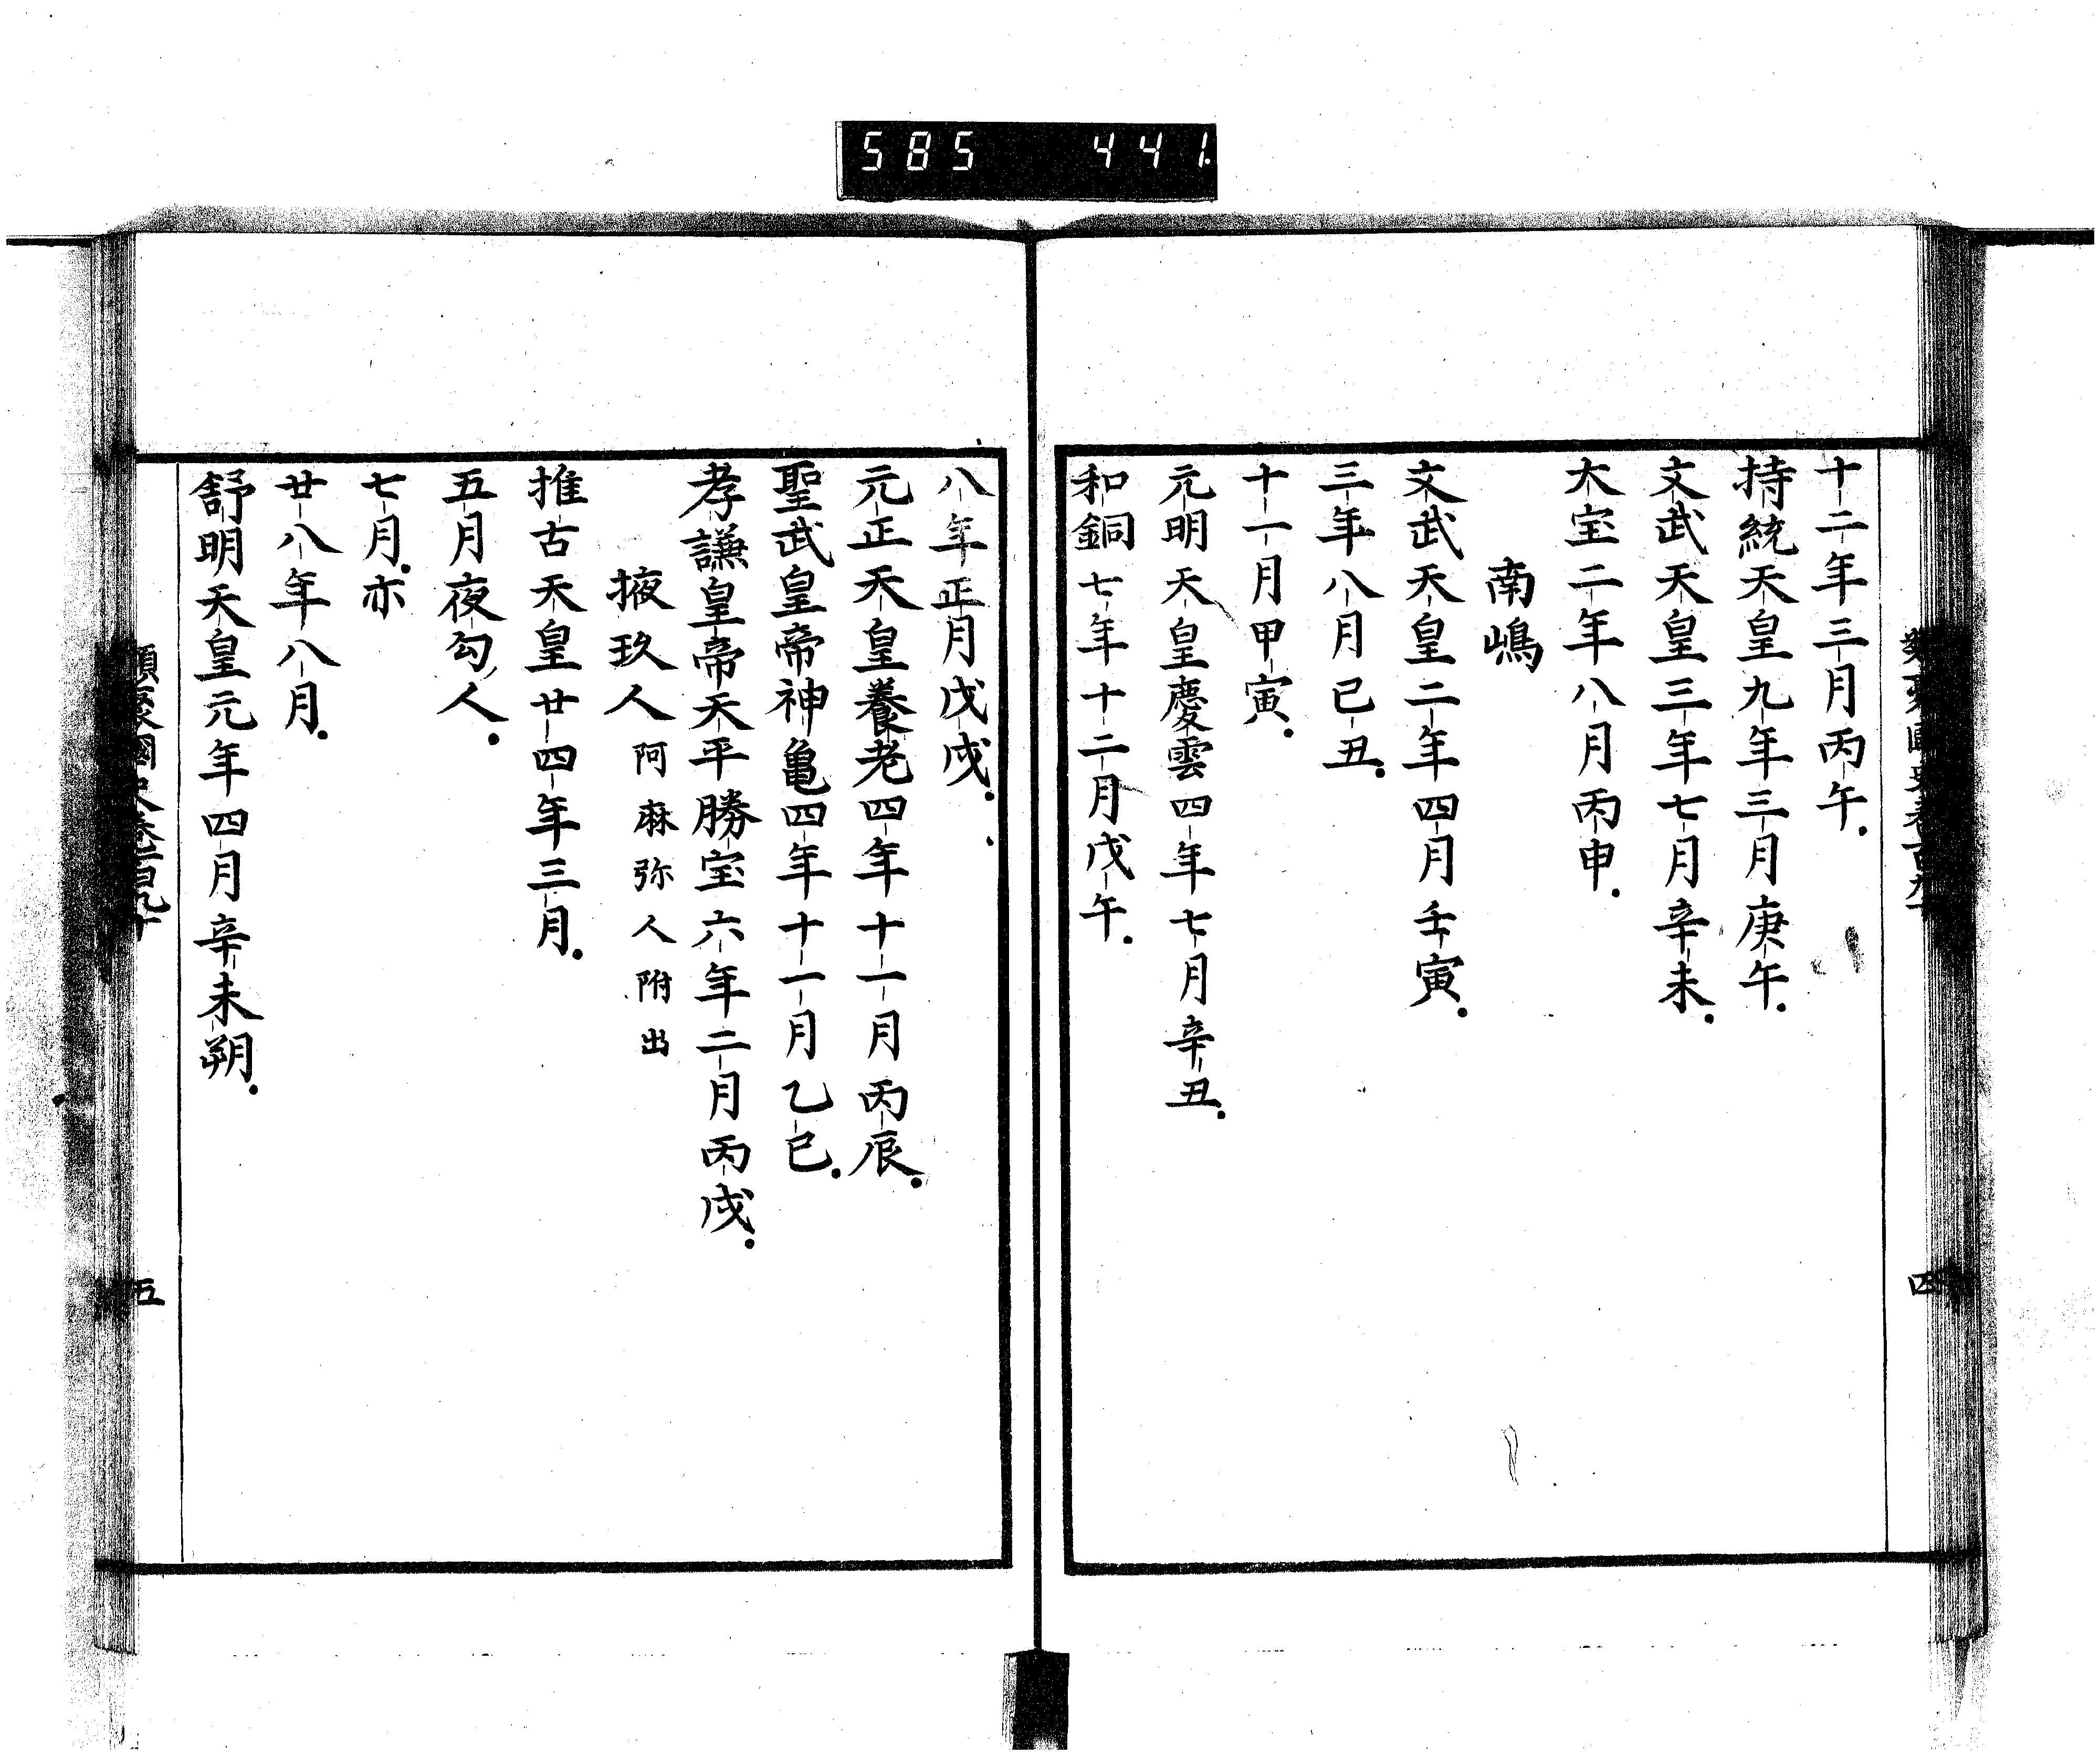 585 441
十二年三月丙午.
持統天皇九年三月庚午.
文武天皇三年七月辛未.
大宝二年八月丙申.
南嶋
文武天皇二年四月壬寅.
三年八月己丑.
十一月甲寅.
元明天皇慶雲四年七月辛丑.
和銅七年十二月戊午.
四
八年正月戊戌.
元正天皇養老四年十一月丙辰.
聖武皇帝神亀四年十一月乙巳.
孝謙皇帝天平勝宝六年二月丙戌.
掖玖人阿麻弥人附出
推古天皇廿四年三月.
五月夜勾人.
七月.亦
廿八年八月.
舒明天皇元年四月辛未朔.
類聚國史卷百九十
五